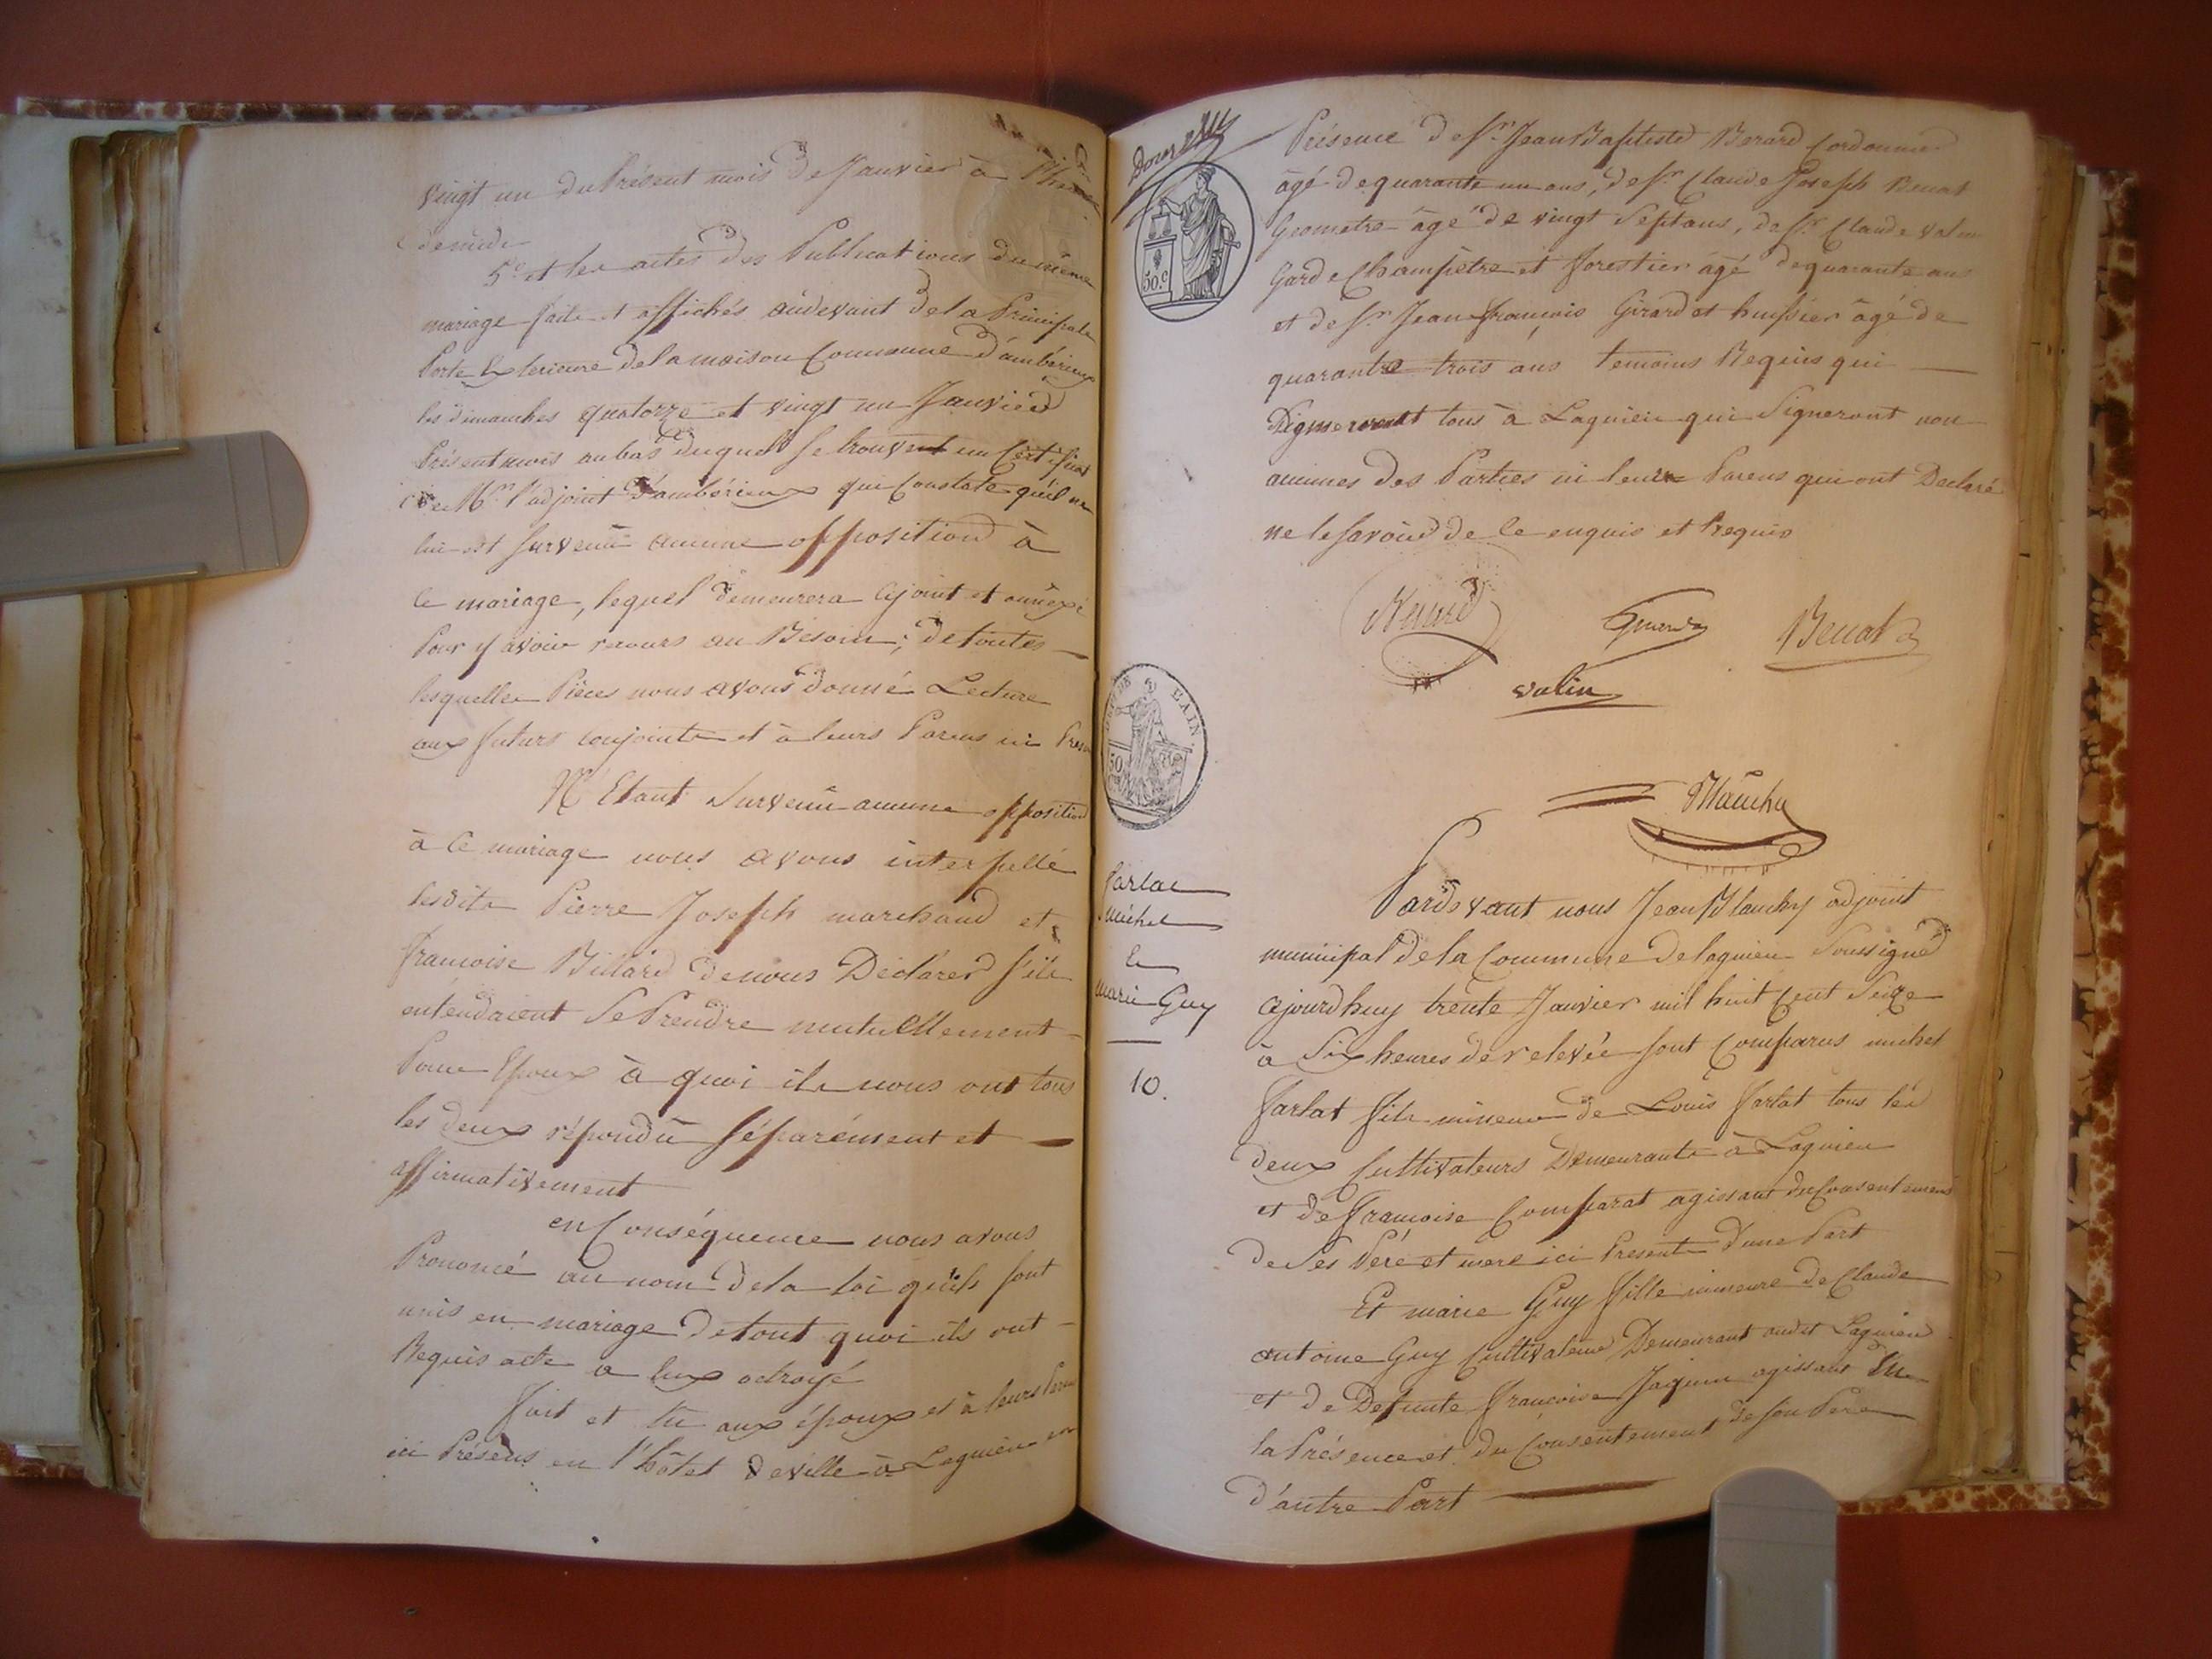 vingt un du Présent mois de Janvier à
de midi
5.° et les actes des Publications du même
mariage faite et affichés audevant de la Principale
Porte Exterieure de la maison Commune d'ambérieux
les dimanches quatorze et vingt un Janvier
Présent mois au bas duquel se trouvent un Certificat
de Mr. l'adjoint d'ambérieux qui Constate qu'il ne
lui est survenu aucune opposition à
Ce mariage, lequel demeurera Cijoint et annexé
Pour y avoir recours au Besoin; de toutes
lesquelles Pièces nous avons donné Lecture
aux futurs conjoints et à leurs Parens ici
N'Etant Survenu aucune opposition
à Ce mariage nous avons interpellé
lesdits Pierre Joseph marchand et
françoise Billard de nous Déclarer s'ils
entendaient Se Prendre mutuellement
Pour Epoux à quoi ils nous ont tous
les deux répondu séparément et
affirmativement
en Conséquence nous avons
Prononcé au nom de la loi qu'ils sont
unis en mariage de tout quoi ils ont
Requis acte a eux octroyé
fait et lu aux époux et à leurs Parens
ici Présens en l'hôtel de ville à Lagnieu en
Douze
50.c
Présence de Sr. Jean Baptiste Berard Cordonnier
âgé de quarante un ans, de Sr. Claude Joseph Benat
Geometre âgé de vingt Sept ans, de Sr. Claude valin
Garde Champêtre et forestier âgé de quarante ans
et de Sr. Jean françois Girardet huissier âgé de
quarante trois ans temoins Requis qui
tous à Lagnieu qui Signeront non
aucunes des Parties ni leurs Parens qui ont Declaré
ne le savoir de Ce enquis et Requis
Benat
valin
Blanchy
50
AIN
farlat
michel
&
marie Guy
10.
Pardevant nous Jean Blanchy adjoint
municipal de la Commune de lagnieu Soussigné
ajourdhuy trente Janvier mil huit Cent Seize
à Six heures de relevée sont Comparus michel
farlat fils mineur de Louis farlat tous les
deux Cultivateurs Demeurants à Lagnieu
et de françoise Comparat agissant du Consentement
de Ses Père et mere ici Presents D'une Part
Et marie Guy fille mineure de Claude
antoine Guy Cultivateur Demeurant audit Lagnieu
et de Defunte françoise Jaquin agissant En
la Présence et du Consentement de son Pere
d'autre Part